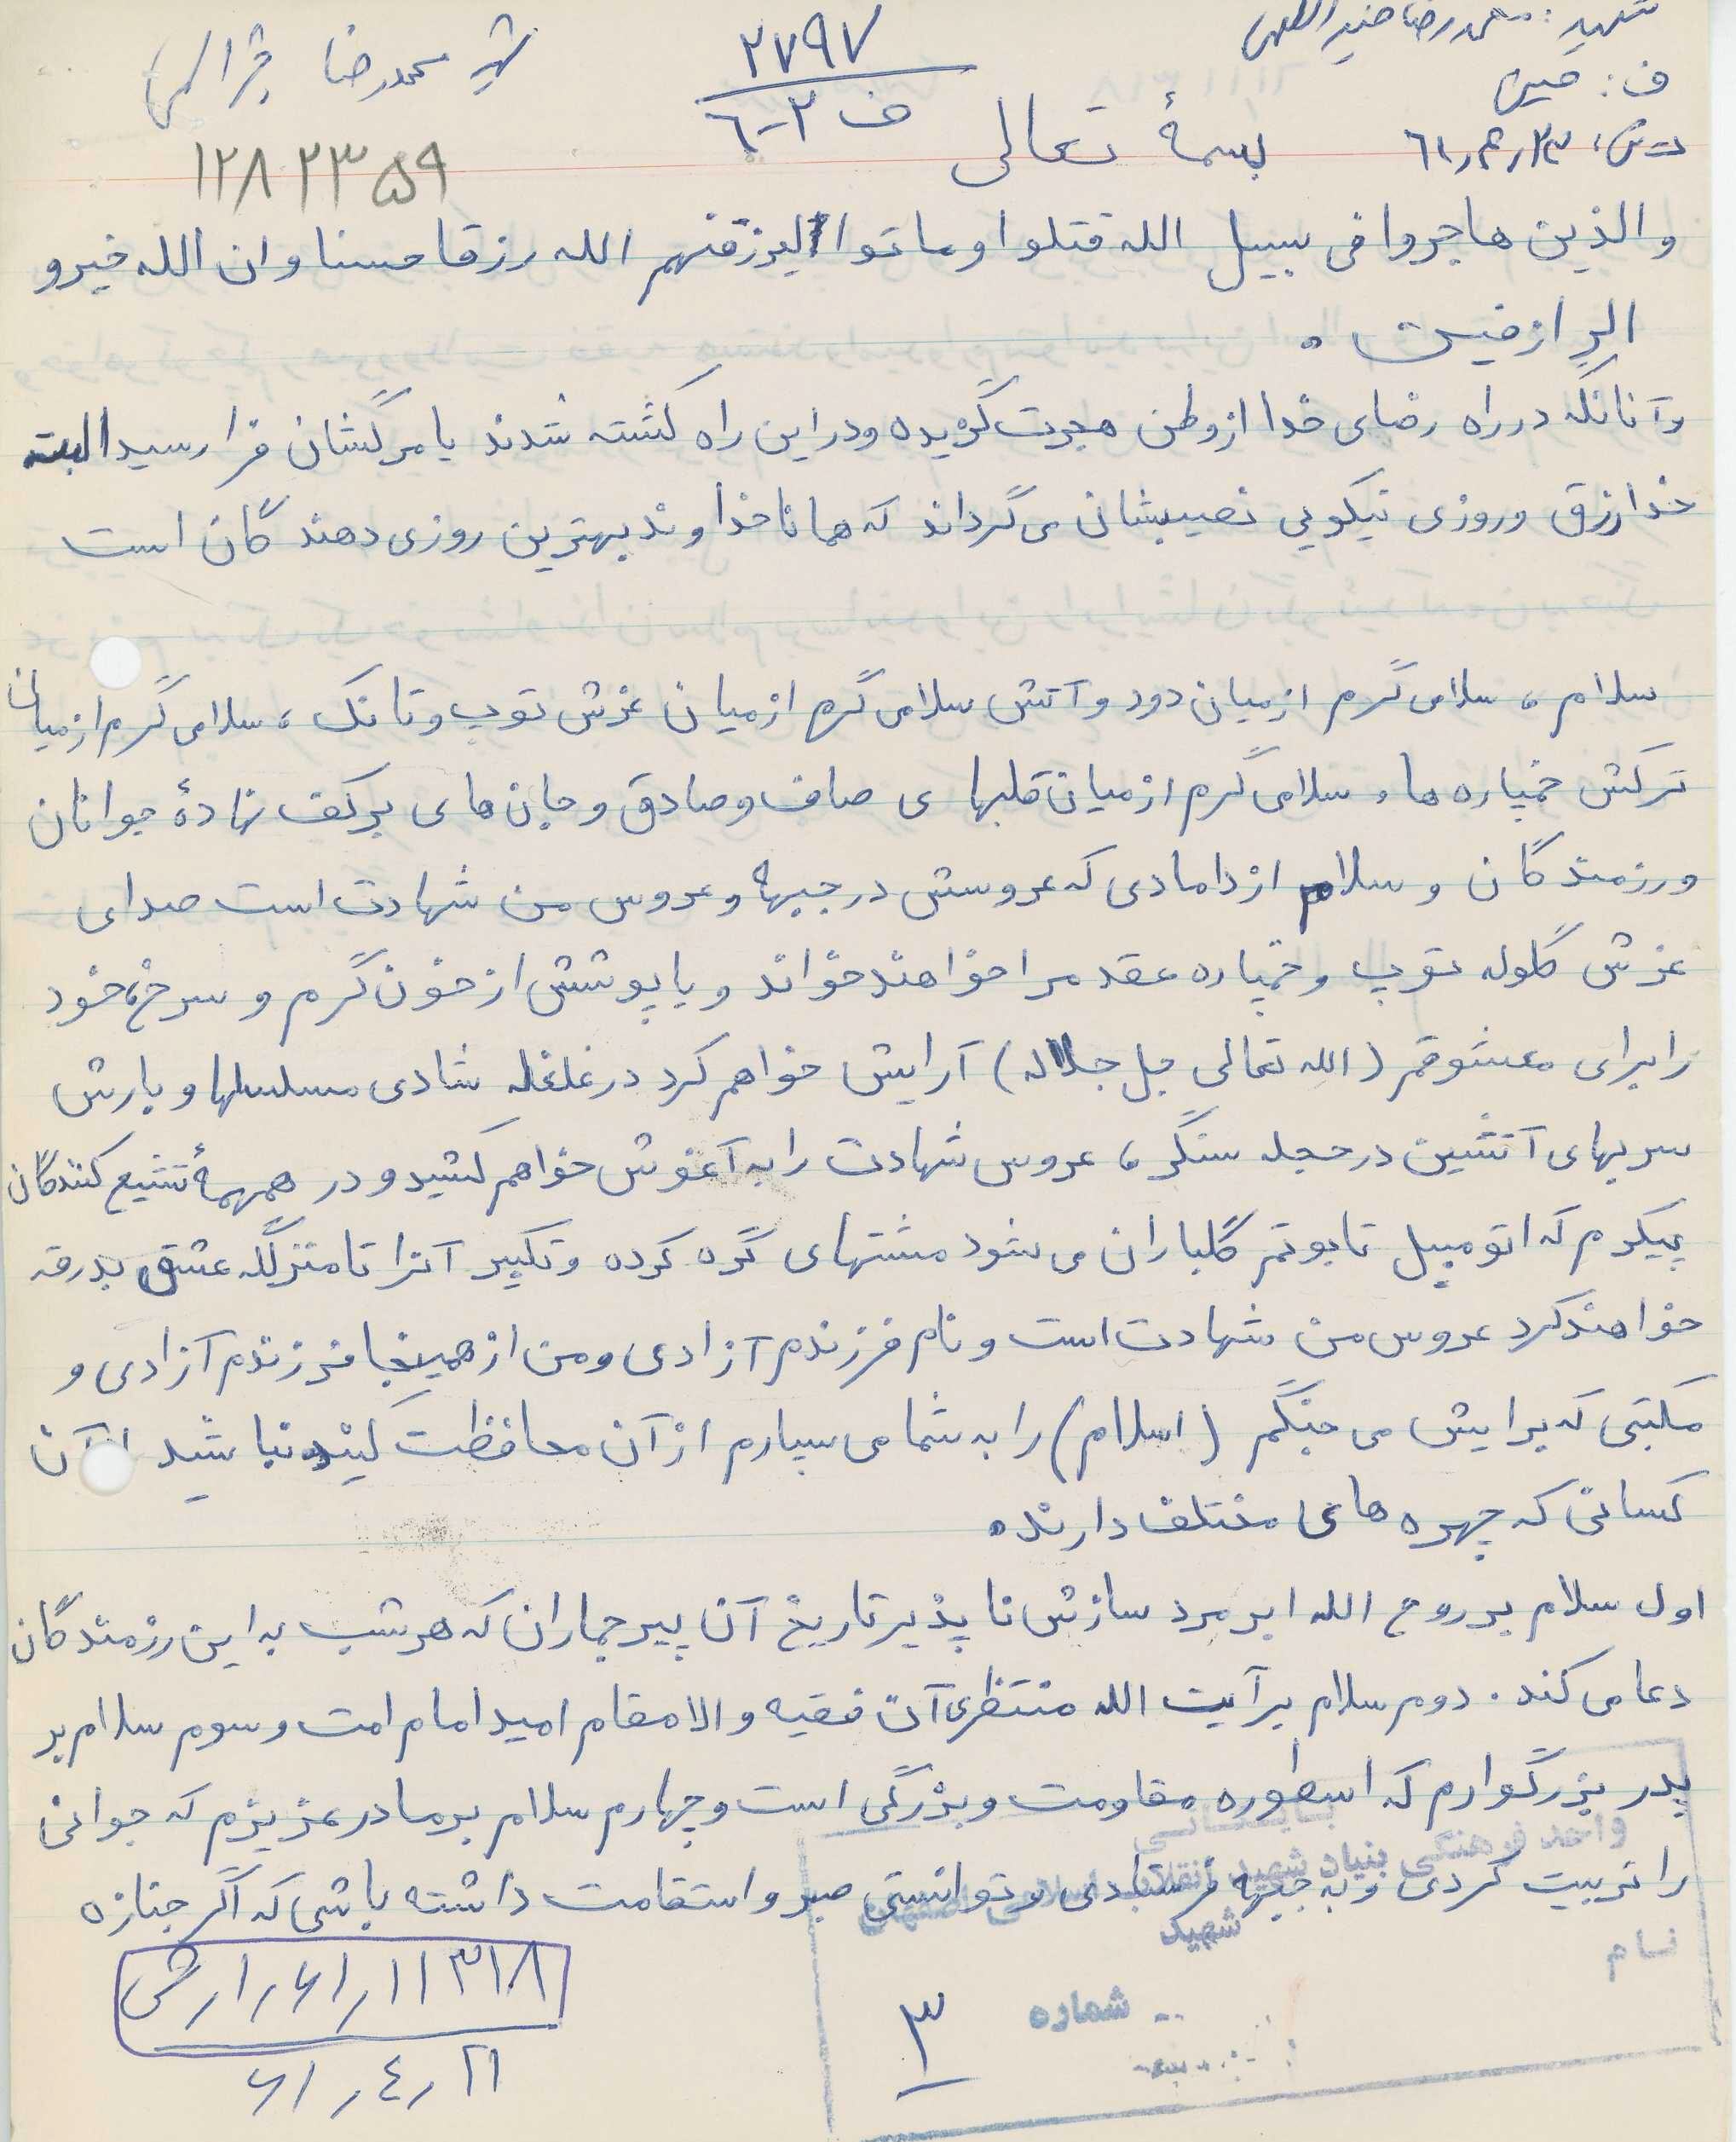 شهید: محمدرضا خیراللهی
ف:
ش، ۶۱٫۴٫۲۳
۲۷۹۷
ف ۲-٦
شهید محمدرضا
۱۲۸۲۳۵۹
بسمهٔ تعالی
والذین هاجروا فی سبیل الله قتلوا وماتوا لیرزقنهم الله رزقا حسنا وان الله خیرو
الرازقین .
وآنانکه درراه رضای خدا ازوطن هجرت گزیده ودراین راه کشته شدند یا مرگشان فرا رسید البته
خدارزق وروزی نیکویی نصیبشان می گرداند که همانا خداوند بهترین روزی دهندگان است
سلام ، سلامی گرم ازمیان دود وآتش سلامی گرم ازمیان غرش توپ وتانک ، سلامی گرم ازمیان
ترکش خمپاره ها، سلامی گرم ازمیان قلبها ی صاف وصادق وجان های برکف نهادهٔ جوانان
ورزمندگان و سلام ازدامادی که عروسش درجبهه وعروس من شهادت است صدای
غرش گلوله توپ وخمپاره عقد مرا خواهند خواند وباپوشش ازخون گرم و سرخ خود
رابرای معشوقم (الله تعالی جل جلاله) آرایش خواهم کرد درغلغله شادی مسلسلها وبارش
سربهای آتشین درحجله سنگر، عروس شهادت رابه آغوش خواهم کشید و در همهمهٔ تشیع کنندگان
پیکرم که اتومبیل تابوتم گلباران می شود مشتهای گره کرده وتکبیر آنرا تا منزلگه عشق بدرقه
خواهندکرد عروس من شهادت است ونام فرزندم آزادی ومن ازهمینجا فرزندم آزادی و
مکتبی که برایش می جنگم (اسلام) را به شما می سپارم ازآن محافظت کنید نباشید ازآن
کسانی که چهره های مختلف دارند.
اول سلام برروح الله ابرمرد سازش ناپذیرتاریخ آن پیرجماران که هرشب به این رزمندگان
دعا می کند . دوم سلام برآیت الله منتظری آن فقیه والامقام امید امام امت وسوم سلام بر
پدر بزرگوارم که اسطوره مقاومت وبزرگی است وچهارم سلام برمادرعزیزم که جوانی
راتربیت کردی وبه جبهه فرستادی وتوانستی صبر واستقامت داشته باشی که اگرجنازه
بایگانی
واحد فرهنگی بنیاد شهید انقلاب اسلامی اصفهان
شهید
نام
شماره
۳
۱۱۳۱۸٫۶۱٫۱٫ش
۶۱٫٤٫۲۱